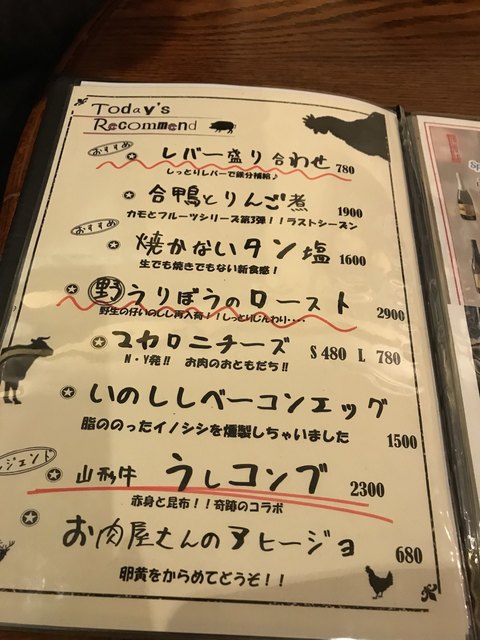 Today's
Recommend
おすすめ
レバー盛り合わせ 780
しっとりレバーで鉄分補給♪
合鴨とりんご煮 1900
カモとフルーツシリーズ第3弾!!ラストシーズン
おすすめ
焼かないタン塩 1600
生でも焼きでもない新食感!
野 うりぼうのロースト 2900
野生の仔いのしし再入荷!!しっとりじんわり・・・・
マカロニチーズ S 480 L 780
N・Y発!! お肉のおともだち!!
いのししベーコンエッグ 1500
脂ののったイノシシを燻製しちゃいました
レジェンド
山形牛 うしコンブ 2300
赤身と昆布!!奇跡のコラボ
お肉屋さんのアヒージョ 680
卵黄をからめてどうぞ!!